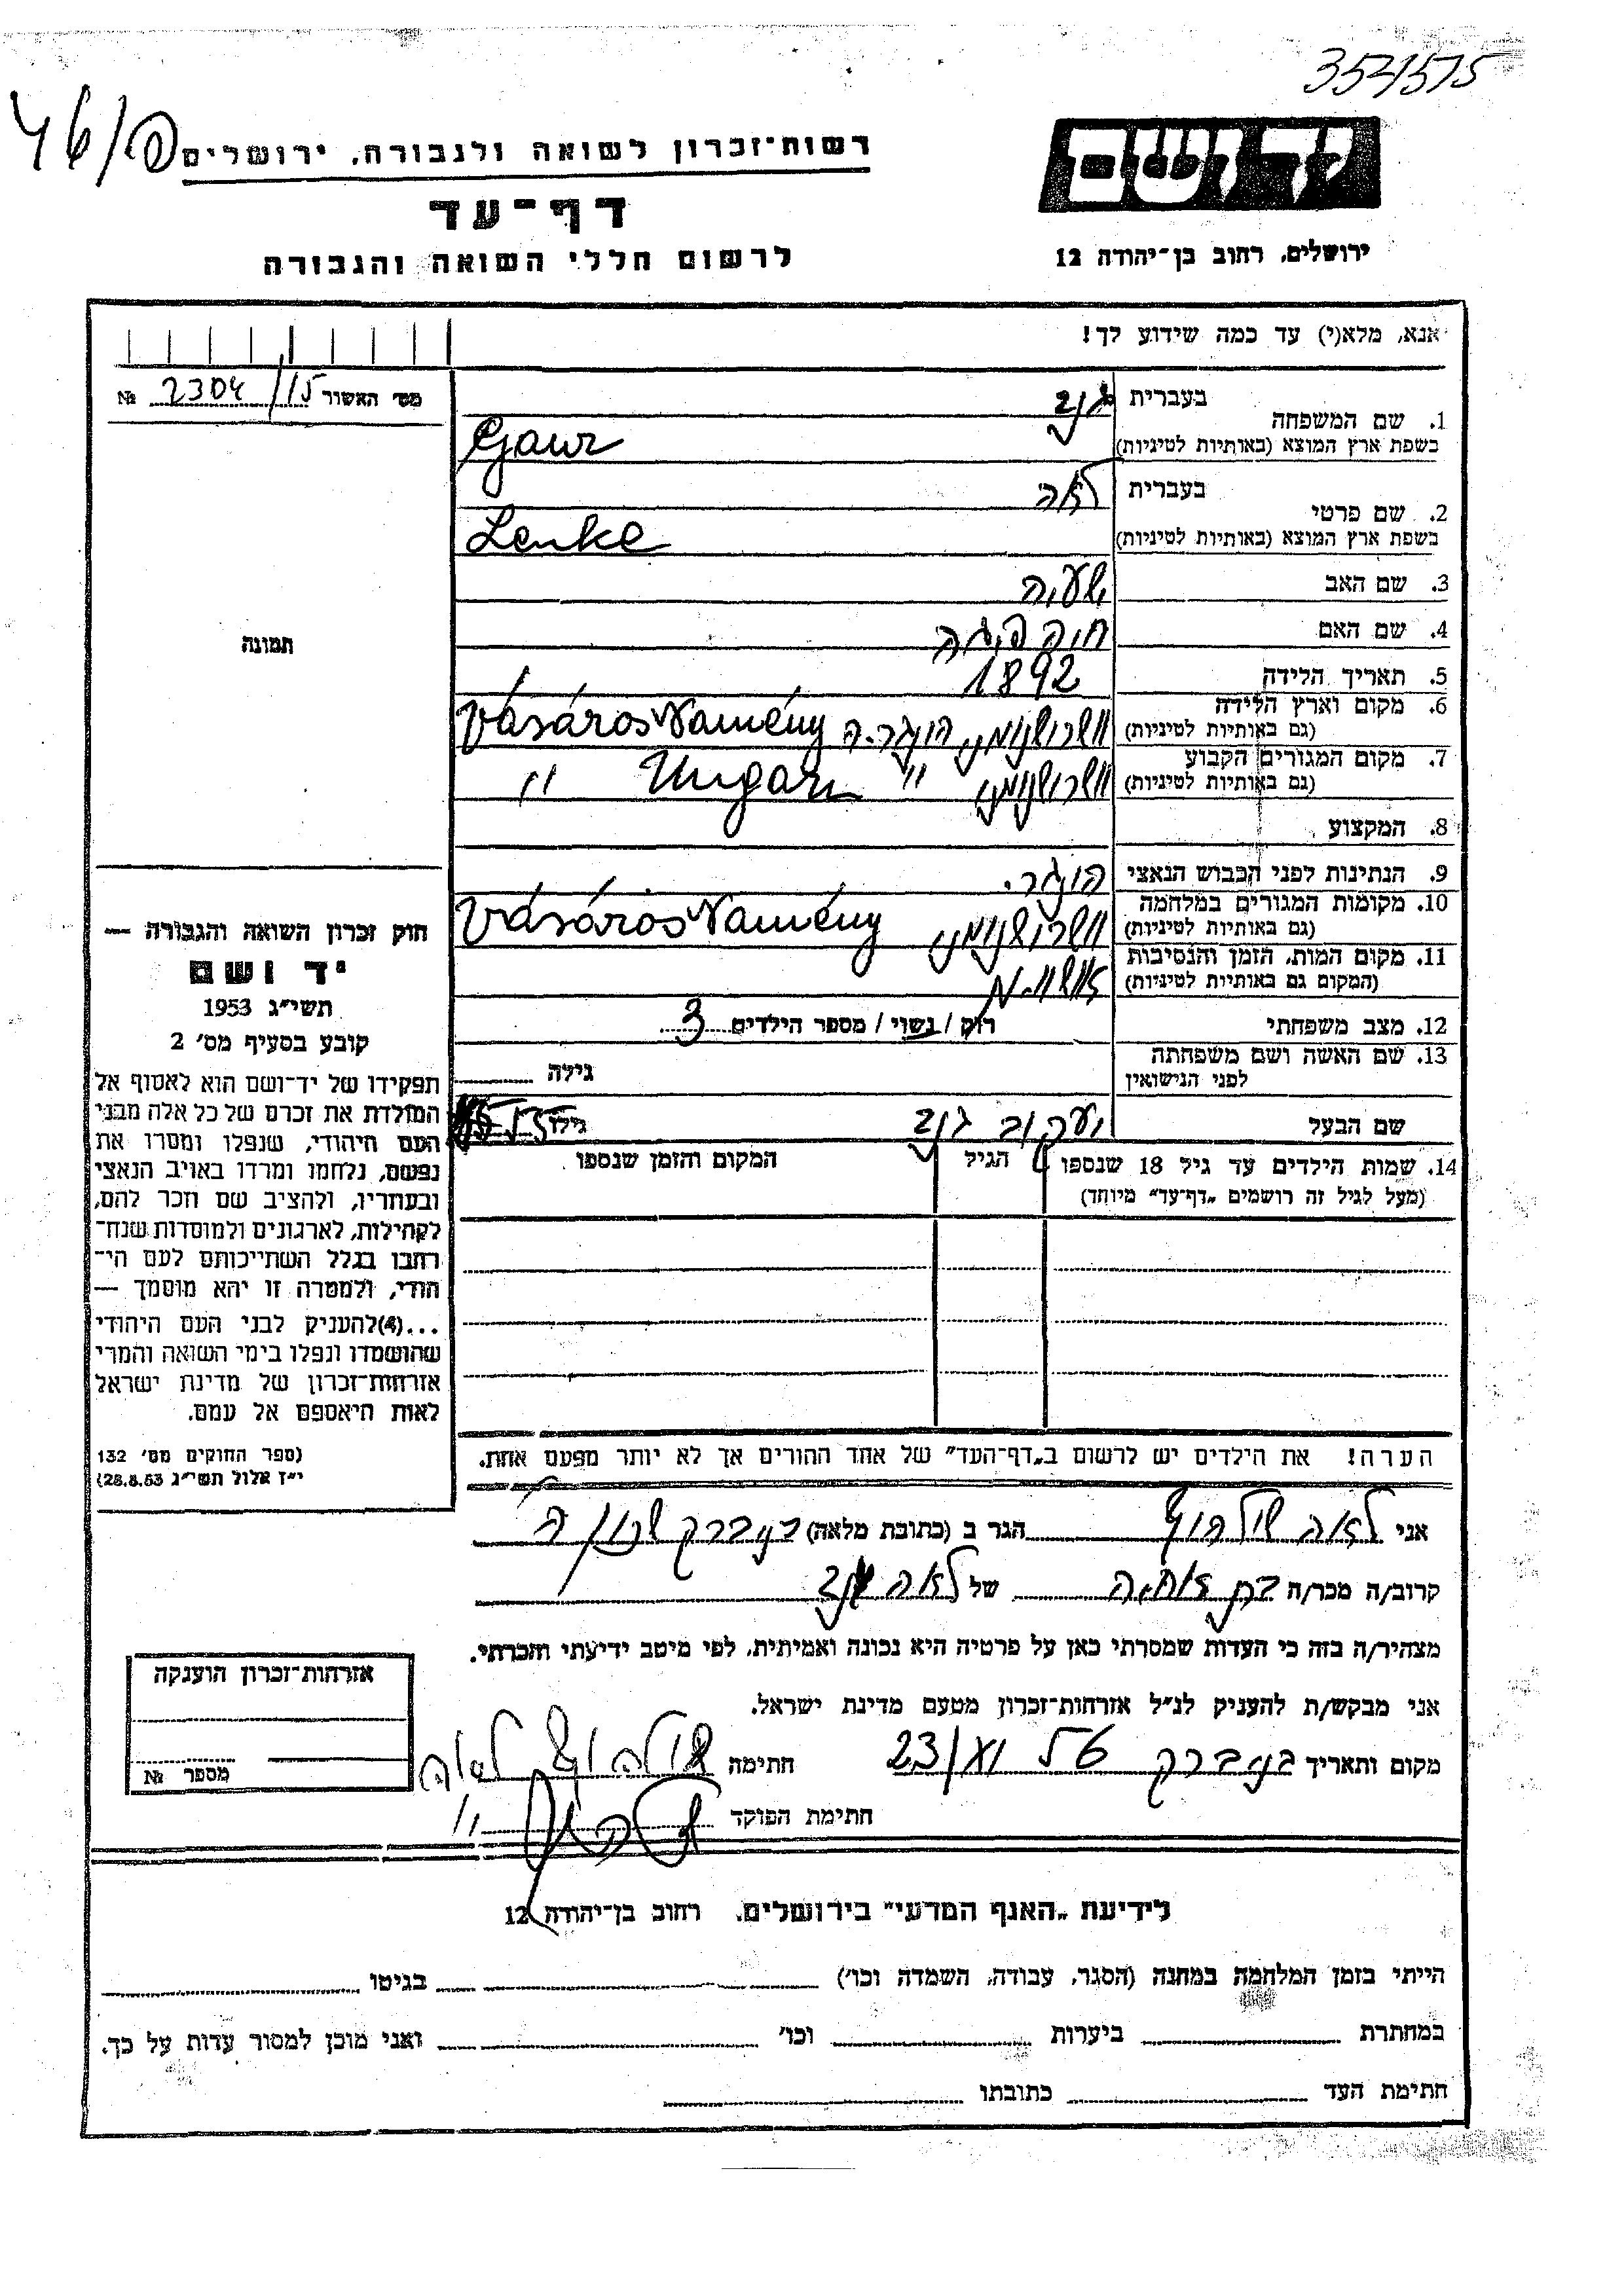 352/575
46/פ
רשות־זכרון לשואה ולגבורה, ירושלים
יד ושם
דף־עד
לרשום חללי השואה והגבורה
ירושלים, רחוב בן־יהודה 12
אנא, מלא(י) עד כמה שידוע לך!
מס׳ האשור 2304/15 №
1. שם המשפחה
בעברית
בשפת ארץ המוצא (באותיות לטיניות) Gaur
2. שם פרטי
בעברית לאה
בשפת ארץ המוצא (באותיות לטיניות) Lenke
3. שם האב ישעיה
4. שם האם חיה פיגה
תמונה
5. תאריך הלידה 1892
6. מקום וארץ הלידה
(גם באותיות לטיניות) וושרושנומני הונגריה VásárosNamény
7. מקום המגורים הקבוע
(גם באותיות לטיניות) וושרושנומני " Ungarn "
8. המקצוע
9. הנתינות לפני הכבוש הנאצי הונגרי
10. מקומות המגורים במלחמה
(גם באותיות לטיניות) וושרושנומני VásárosNamény
11. מקום המות, הזמן והנסיבות
(המקום גם באותיות לטיניות) אושויץ
12. מצב משפחתי רוק / נשוי / מספר הילדים 3
13. שם האשה ושם משפחתה
לפני הנישואין
גילה
שם הבעל יעקוב
גילו 55
14. שמות הילדים עד גיל 18 שנספו
(מעל לגיל זה רושמים „דף־עד״ מיוחד)
הגיל
המקום והזמן שנספו
חוק זכרון השואה והגבורה —
יד ושם
תשי״ג 1953
קובע בסעיף מס׳ 2
תפקידו של יד־ושם הוא לאסוף אל
המולדת את זכרם של כל אלה מבני
העם היהודי, שנפלו ומסרו את
נפשם, נלחמו ומרדו באויב הנאצי
ובעוזריו, ולהציב שם וזכר להם,
לקהילות, לארגונים ולמוסדות שנח־
רבו בגלל השתייכותם לעם הי־
הודי, ולמטרה זו יהא מוסמך —
...(4)להעניק לבני העם היהודי
שהושמדו ונפלו בימי השואה והמרי
אזרחות־זכרון של מדינת ישראל
לאות היאספם אל עמם.
(ספר החוקים מס׳ 132
י״ז אלול תשי״ג 28.8.53)
הערה! את הילדים יש לרשום ב„דף־העד״ של אחד ההורים אך לא יותר מפעם אחת.
אני לאה הגר ב (כתובת מלאה) בני ברק
קרוב/ה מכר/ה בת אחיה של לאה
מצהיר/ה בזה כי העדות שמסרתי כאן על פרטיה היא נכונה ואמיתית, לפי מיטב ידיעתי והכרתי.
אני מבקש/ת להעניק לנ״ל אזרחות־זכרון מטעם מדינת ישראל.
אזרחות־זכרון הוענקה
מספר №
מקום ותאריך בני ברק 23/ חתימה לאה
חתימת הפוקד
לידיעת „האגף המדעי״ בירושלים. רחוב בן־יהודה 12
הייתי בזמן המלחמה במחנה (הסגר, עבודה, השמדה וכו׳) בגיטו
במחתרת ביערות וכו׳ ואני מוכן למסור עדות על כך.
חתימת העד כתובתו